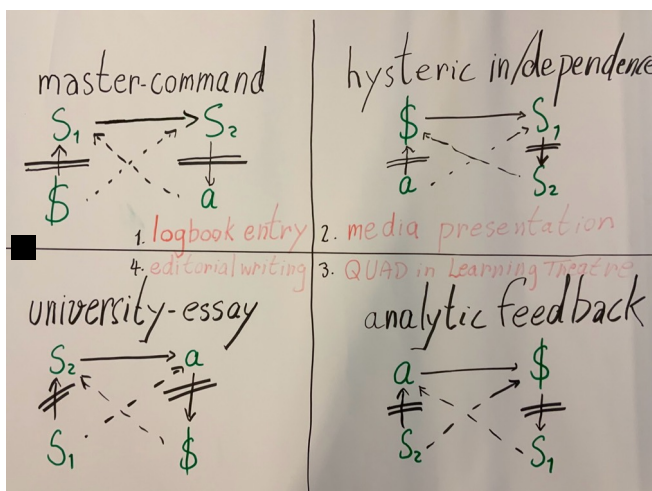 master-command
S₁ S₂
$ a
1. logbook entry
hysteric in/dependence
$ S₁
a S₂
2. media presentation
4. editorial writing
university-essay
S₂ a
S₁ $
3. QUAD in Learning Theatre
analytic feedback
a $
S₂ S₁